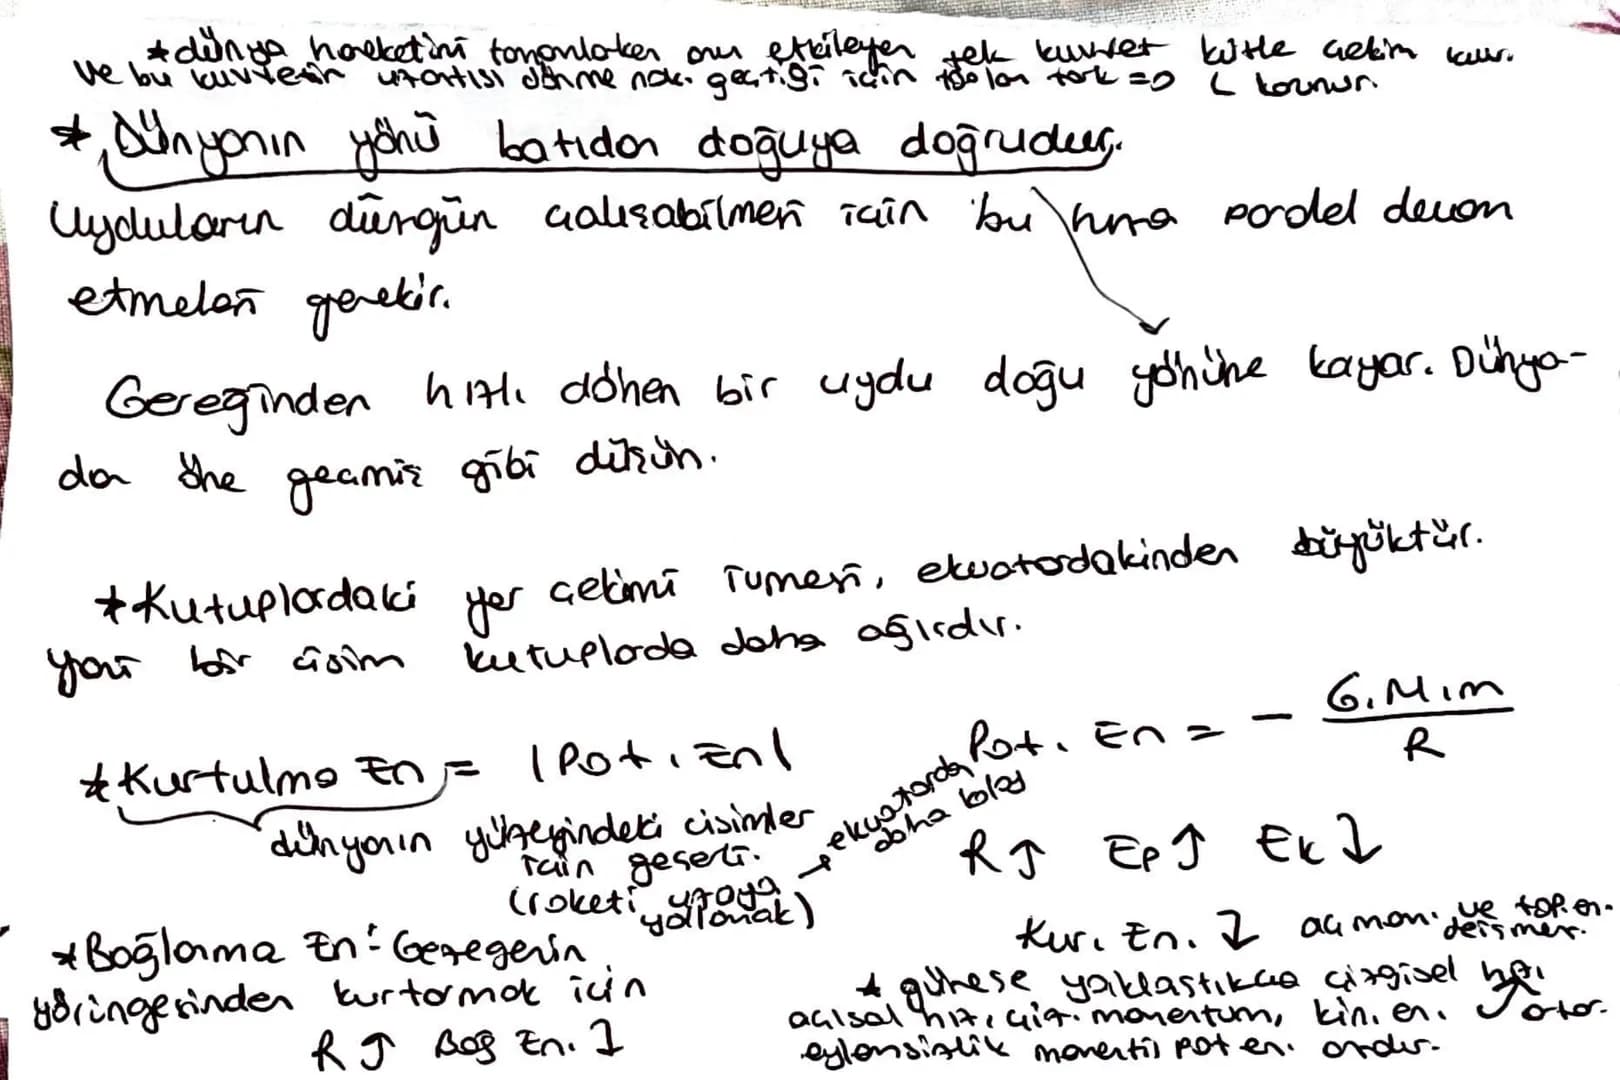 *dünya hareketini tamamlarken onu etkileyen tek kuvvet kütle çekim kuv.
ve bu kuvvetin uzantısı dönme nok. geçtiği için toplan tork =0 L korunur.
* Dünyanın yönü batıdan doğuya doğrudur.
Uyduların düzgün çalışabilmesi için bu hıza paralel devam
etmeleri gerekir.
Gereğinden hızlı dönen bir uydu doğu yönüne kayar. Dünya-
dan öne geçmiş gibi düşün.
*Kutuplardaki yer çekimi ivmesi, ekvatordakinden büyüktür.
yani bir cisim kutuplarda daha ağırdır.
*Kurtulma En = |Pot. En|
Pot. En = - G.M.m / R
dünyanın yüzeyindeki cisimler
için geçerli.
(roketi uzaya
yollamak)
→ ekvatorda
daha kolay
R↑ Ep↑ Ek↓
Kur. En. ↓ aç mom. ve top. en.
değişmez.
*Bağlanma En: Gezegenin
yörüngesinden kurtarmak için
R↑ Bağ En. ↓
* güneşe yaklaştıkça çizgisel hız,
açısal hız, çiz. momentum, kin. en. artar.
eylemsizlik momenti, pot en. azalır.